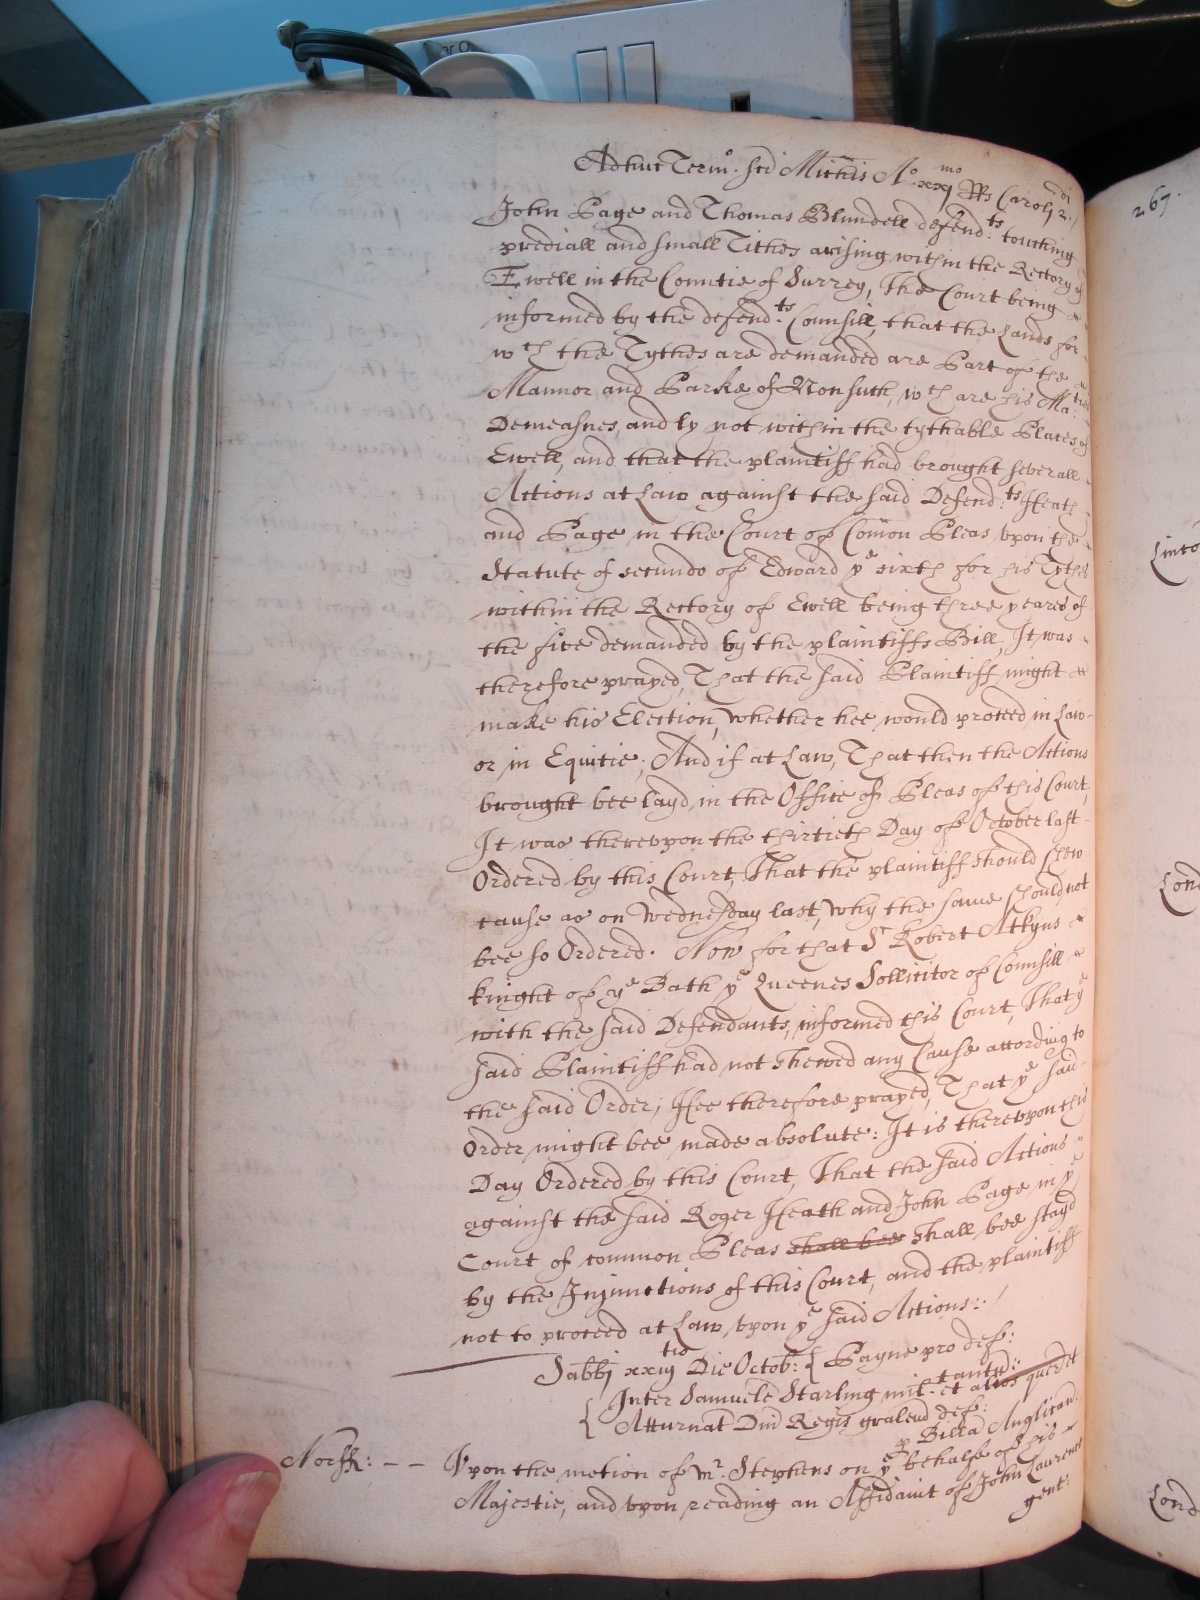 Adhuc Term.o Sci Mich̃is A.o xxj mo Rs Caroli 2.di
John Page and Thomas Blundell defend.ts touching
prediall and small Tithes arising within the Rectory of
Ewell in the Countie of Surrey, The Court being
informed by the defend.ts Counsill, that the Lands for
wch the Tythes are demanded are Part of the
Mannor and Parke of Nonsuch, wch are his Ma:ties
Demeasnes, and ly not within the tythable Places of
Ewell, and that the plaintiff had brought severall
Actions at Law against the said Defend.ts Heath
and Page in the Court of Com̃on Pleas vpon the
Statute of secundo of Edward ye sixth for his Tythes
within the Rectory of Ewell being three yeares of
the five demanded by the plaintiffs Bill, It was
therefore prayed, That the said Plaintiff might
make his Election, whether hee would proceed in Law
or in Equitie; And if at Law, That then the Actions
brought bee layd in the Office of Pleas of this Court,
It was therevpon the thirtieth Day of October last
Ordered by this Court, That the plaintiff should shew
cause as on Wednesday last, why the same should not
bee so Ordered. Now for that Sr Robert Atkyns
knight of ye Bath ye Queenes Sollicitor of Counsill
with the said Defendants, informed this Court, That ye
said Plaintiff had not shewed any Cause according to
the said Order; Hee therefore prayed, That ye said
Order might bee made absolute: It is therevpon this
Day Ordered by this Court, That the said Actions
against the said Roger Heath and John Page in ye
Court of common Pleas shall bee shall bee stayd
by the Injunctions of this Court, and the plaintiff
not to proceed at Law vpon ye said Actions:
Sabbj xxiij tio Die Octob: { Payne pro def:
tantu:
Inter Samuele Starling mil. et alios queren̄t
Atturnat Dni Regis gralem def:
p Billa Anglican:
Norff: -- Vpon the motion of mr. Stephens on ye behalfe of his
Majestie, and vpon reading an Affidavit of John Laurence
gent:
267.
Linco
Lond
Lond